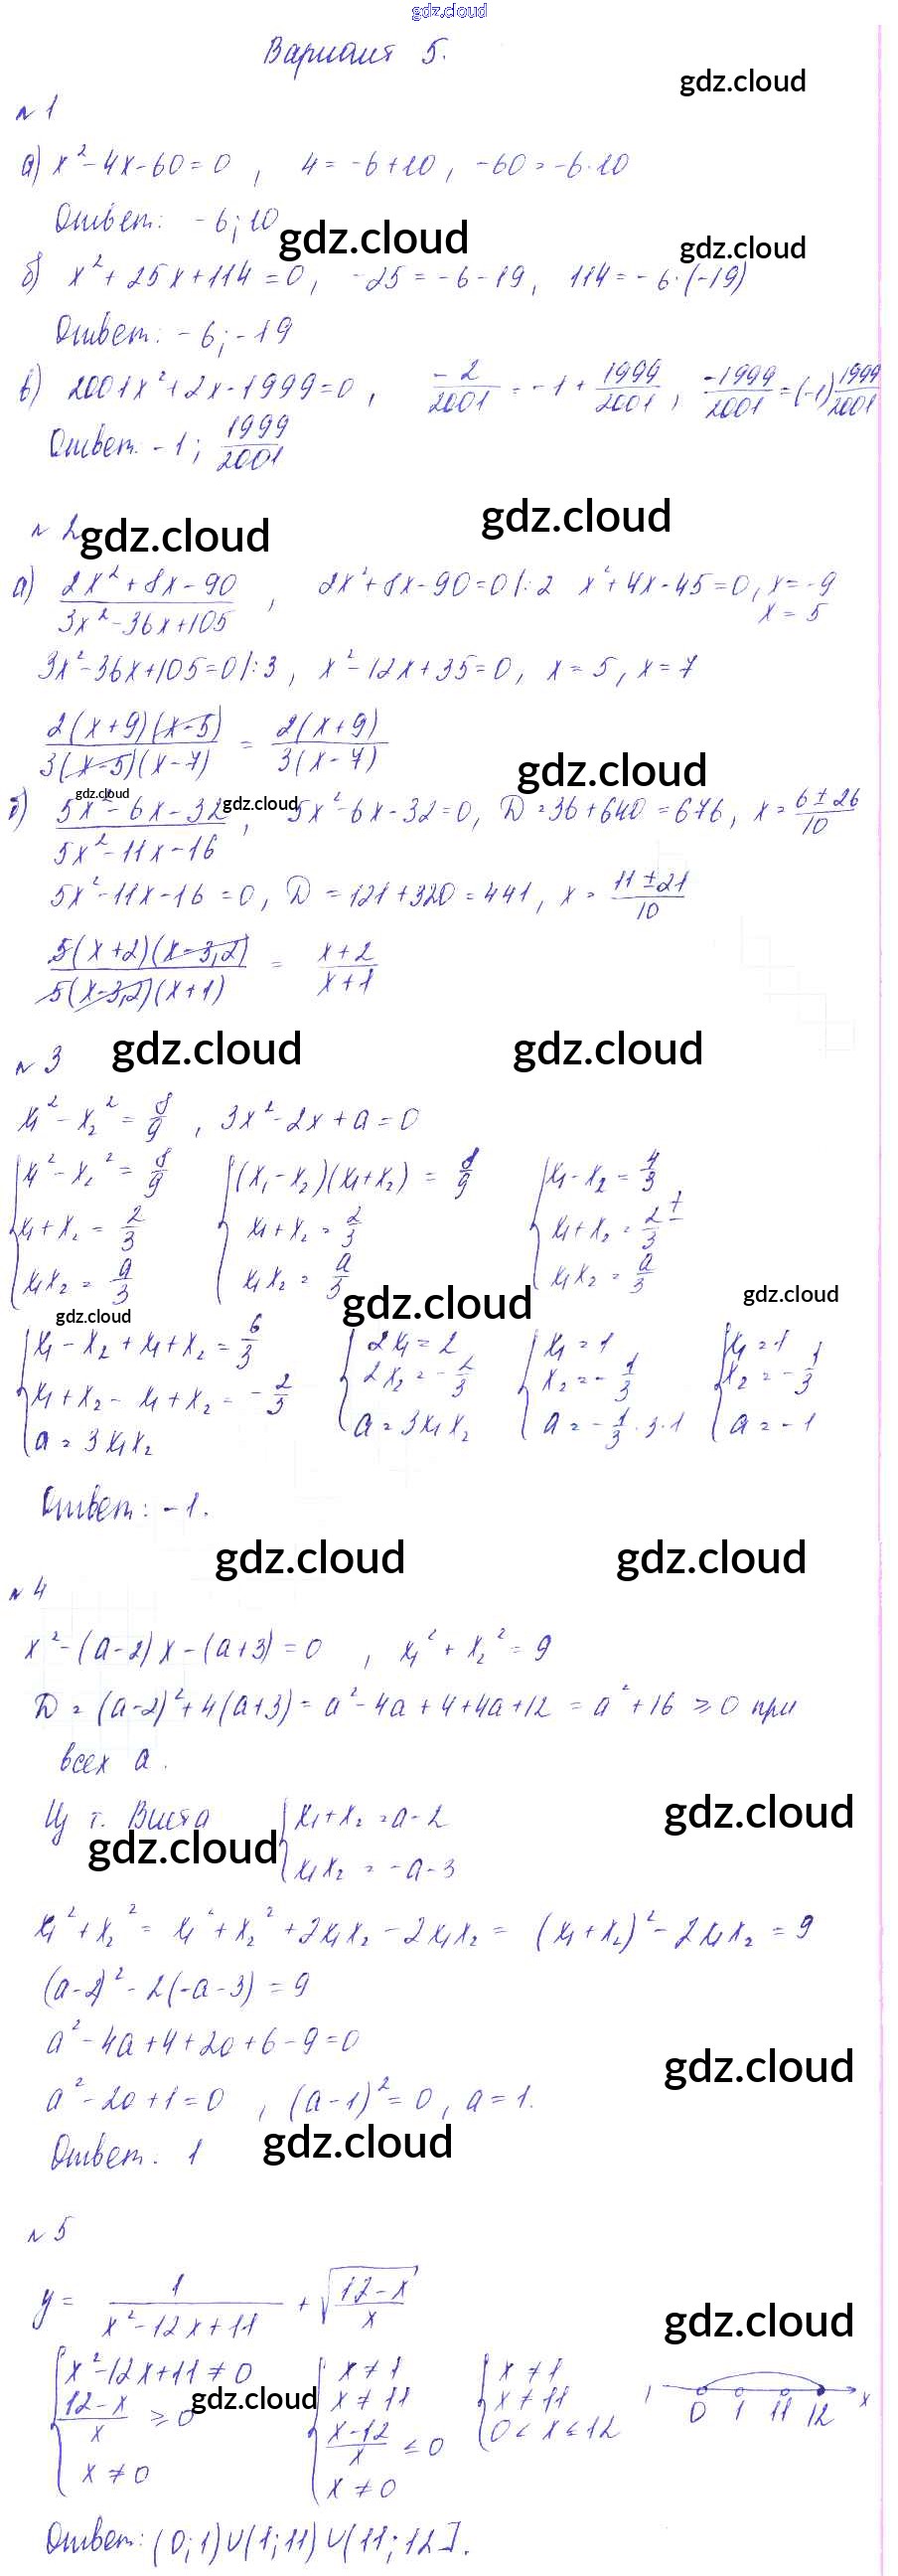 gdz.cloud
Вариант 5.
gdz.cloud
№ 1
а) x² - 4x - 60 = 0 , 4 = -6 + 10 , -60 = -6 · 10
Ответ: -6; 10
gdz.cloud gdz.cloud
б) x² + 25x + 114 = 0 , -25 = -6 - 19 , 114 = -6 · (-19)
Ответ: -6; -19
в) 2001x² + 2x - 1999 = 0 , -2/2001 = -1 + 1999/2001 , -1999/2001 = (-1) 1999/2001
Ответ. -1; 1999/2001
gdz.cloud
№ 2 gdz.cloud
а) (2x² + 8x - 90)/(3x² - 36x + 105) , 2x² + 8x - 90 = 0 |:2 x² + 4x - 45 = 0 , x = -9
x = 5
3x² - 36x + 105 = 0 |:3 , x² - 12x + 35 = 0 , x = 5 , x = 7
2(x+9)(x-5)/3(x-5)(x-7) = 2(x+9)/3(x-7)
gdz.cloud
б) (5x² - 6x - 32)/(5x² - 11x - 16) , 5x² - 6x - 32 = 0 , D = 36 + 640 = 676 , x = (6 ± 26)/10
gdz.cloud gdz.cloud
5x² - 11x - 16 = 0 , D = 121 + 320 = 441 , x = (11 ± 21)/10
5(x+2)(x-3,2)/5(x-3,2)(x+1) = (x+2)/(x+1)
№ 3 gdz.cloud gdz.cloud
x₁² - x₂² = 8/9 , 3x² - 2x + a = 0
{ x₁² - x₂² = 8/9 { (x₁ - x₂)(x₁ + x₂) = 8/9 { x₁ - x₂ = 4/3
x₁ + x₂ = 2/3 x₁ + x₂ = 2/3 x₁ + x₂ = 2/3 ±
x₁x₂ = a/3 x₁x₂ = a/3 x₁x₂ = a/3
gdz.cloud gdz.cloud gdz.cloud
{ x₁ - x₂ + x₁ + x₂ = 6/3 { 2x₁ = 2 { x₁ = 1 { x₁ = 1
x₁ + x₂ - x₁ + x₂ = -2/3 2x₂ = -2/3 x₂ = -1/3 x₂ = -1/3
a = 3x₁x₂ a = 3x₁x₂ a = -1/3 · 3 · 1 a = -1
Ответ: -1.
gdz.cloud gdz.cloud
№ 4
x² - (a-2)x - (a+3) = 0 , x₁² + x₂² = 9
D = (a-2)² + 4(a+3) = a² - 4a + 4 + 4a + 12 = a² + 16 ≥ 0 при
всех a.
Из т. Виета { x₁ + x₂ = a - 2
gdz.cloud
gdz.cloud x₁x₂ = -a - 3
x₁² + x₂² = x₁² + x₂² + 2x₁x₂ - 2x₁x₂ = (x₁ + x₂)² - 2x₁x₂ = 9
(a-2)² - 2(-a-3) = 9
a² - 4a + 4 + 2a + 6 - 9 = 0
gdz.cloud
a² - 2a + 1 = 0 , (a-1)² = 0 , a = 1.
Ответ. 1 gdz.cloud
№ 5
y = 1/(x² - 12x + 11) + √((12-x)/x)
gdz.cloud
{ x² - 12x + 11 ≠ 0 { x ≠ 1 { x ≠ 1
(12-x)/x ≥ 0 x ≠ 11 x ≠ 11
gdz.cloud
x ≠ 0 (x-12)/x ≤ 0 0 < x ≤ 12
x ≠ 0
0 1 11 12 x
Ответ: (0;1)∪(1;11)∪(11;12].